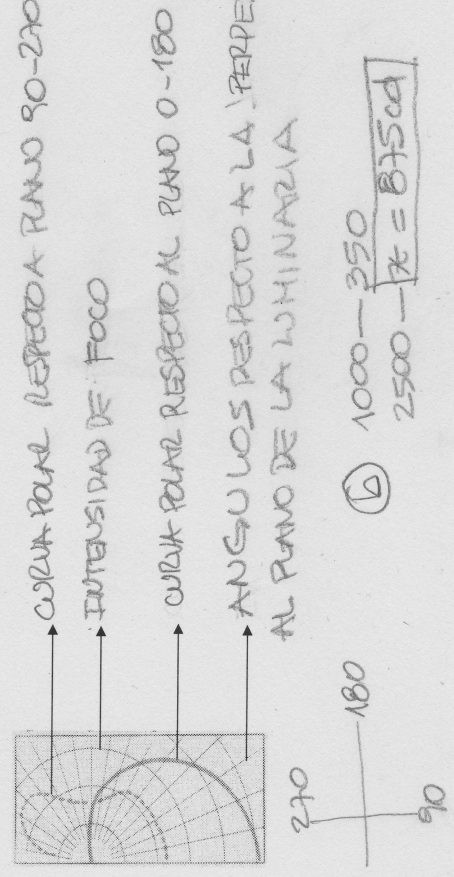 CURVA POLAR RESPECTO A PLANO 90-270
INTENSIDAD DE FOCO
CURVA POLAR RESPECTO AL PLANO 0-180
ANGULOS RESPECTO A LA PERPE
AL PLANO DE LA LUMINARIA
270
180
90
b 1000 — 350
2500 — x = 875cd